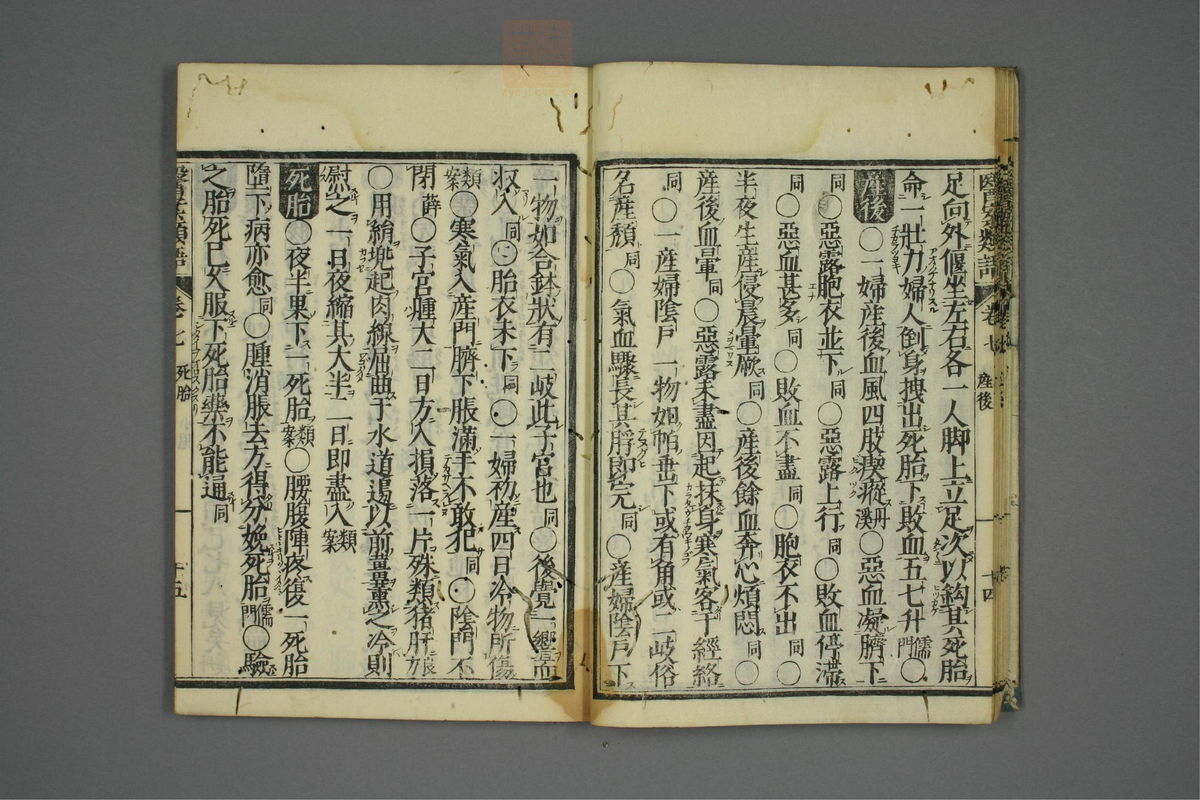 足向外偃坐左右各一人脚上立足次以鈎其死胎
命一壯力婦人倒身拽出死胎下敗血五七升儒門〇
産後〇一婦産後血風四肢瘈瘲丹溪〇惡血凝臍下
同〇惡露胞衣並下同〇惡露上行同〇敗血停滞
同〇惡血甚多同〇敗血不盡同〇胞衣不出同〇
半夜生産侵晨暈厥同〇産後餘血奔心煩悶同〇
産後血暈同〇惡露未盡因起抹身寒氣客于經絡
同〇一産婦陰戸一物如帕垂下或有角或二岐俗
名産頽同〇氣血驟長其脬即完同〇産婦陰戸下
産後
十四
一物如合鉢狀有二岐此子宮也同〇後覺一響而
収入同〇胎衣未下同〇一婦初産四日冷物所傷
類案〇寒氣入産門臍下脹滿手不敢犯同〇陰門不
閉薛〇子宮腫大二日方入損落一片殊類猪肝
〇用絹兜起肉線屈曲于水道邊以前薑薫之冷則
慰之一日夜縮其大半二日即盡入類案
死胎〇夜半果下一死胎類案〇腰腹陣疼復一死胎
墮下病亦愈同〇腫消脹去方得分娩死胎儒門〇驗
之胎死已久服下死胎藥不能通同
卷七 死胎
十五